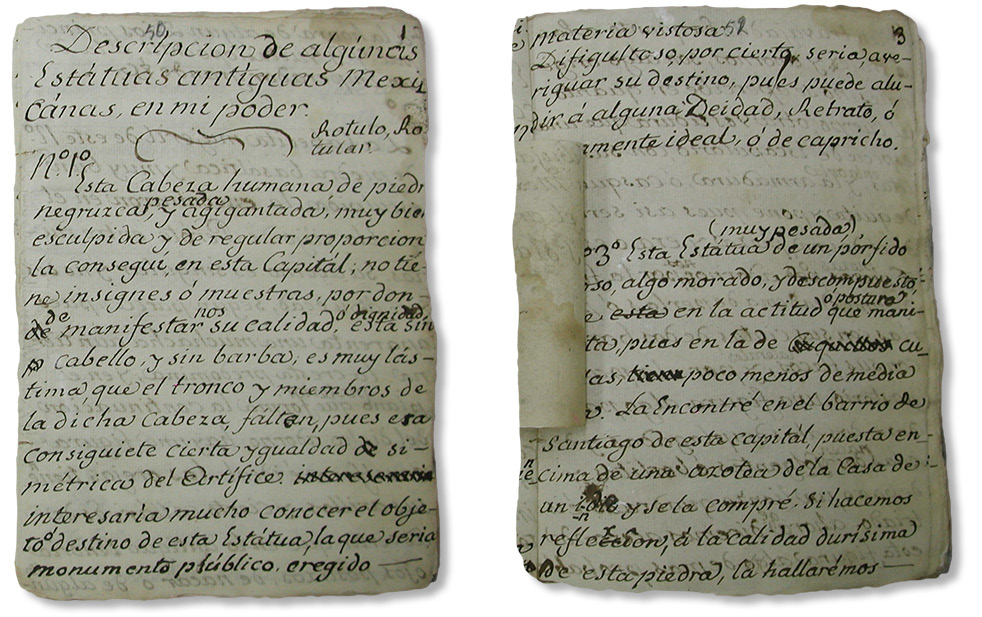 50 1
Descripcion de algúnas
Estátuas antíguas Mexi
cánas, en mi poder.
Rotulo, Ro
tular.
Nº. 1º.
Esta Cabeza humana de piedr
pesada
negruzca, y agigantada, muy bien
esculpida y de regular proporcion
la conseguí en esta Capitál; no tie-
ne insignes ó muestras, por don-
de nos ó dignidad,
manifestar su calidad, está sin
cabello, y sin barba; es muy lás-
tima que el tronco y miembros de
la dicha Cabeza, fálten, pues era
consiguiete cierta ygualdad de si-
métrica del Artífice
interesaría mucho conocer el obje-
to ó destino de esta Estátua, la que sería
monumento público, eregido
52 3
materia vistosa.
Difiqultoso, por cierto, seria, ave-
riguar su destino, pues puede alu-
dir á alguna Deidad, Retrato, ó
amente ideal, ó de capricho.
(muy pesada)
3º Esta Estátua de un pórfido
rso, algo morado, y descompuesto
ó postura
e esta en la actitud que mani-
ta, pues en la de cu-
as, poco menos de media
La Encontré en el barrio de
Santiago de esta capitál, puesta en-
cima de una azotea de la Casa de
un y se la compré. Si hacemos
á la calidad durísima
de esta piedra, la hallarémos